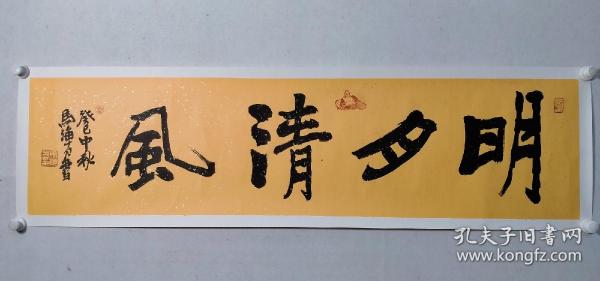 明月清風
癸巳中秋
馬海方書
孔夫子旧書网
www.kongfz.com